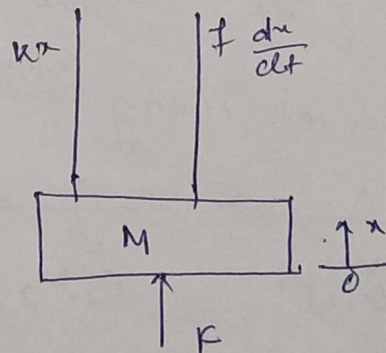 Kx
f dx/dt
M
x
0
F